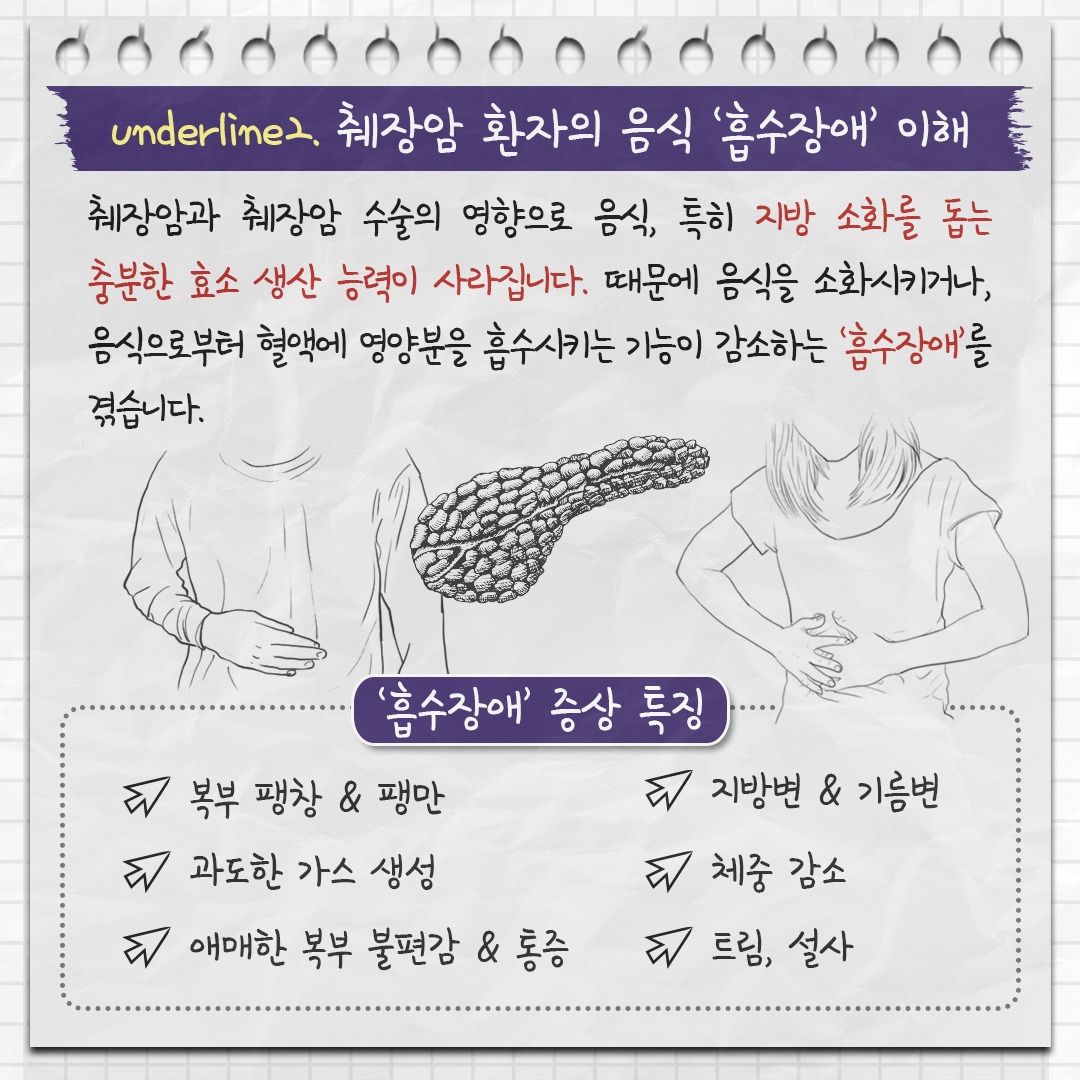 underline2. 췌장암 환자의 음식 ‘흡수장애’ 이해
췌장암과 췌장암 수술의 영향으로 음식, 특히 지방 소화를 돕는
충분한 효소 생산 능력이 사라집니다. 때문에 음식을 소화시키거나,
음식으로부터 혈액에 영양분을 흡수시키는 기능이 감소하는 ‘흡수장애’를
겪습니다.
‘흡수장애’ 증상 특징
복부 팽창 & 팽만
과도한 가스 생성
애매한 복부 불편감 & 통증
지방변 & 기름변
체중 감소
트림, 설사